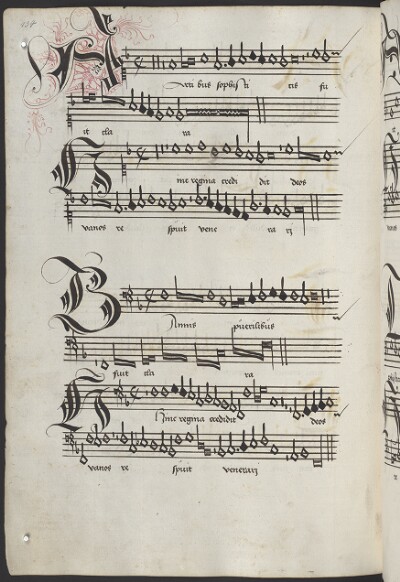 Artibus sophisti tis fu
it cla ra
Hinc regina credi dit deos
vanos re spuit vene rari
B annis puerilibus
fuit cla ra
Hinc regina credidit deos
vanos re spuit venerari